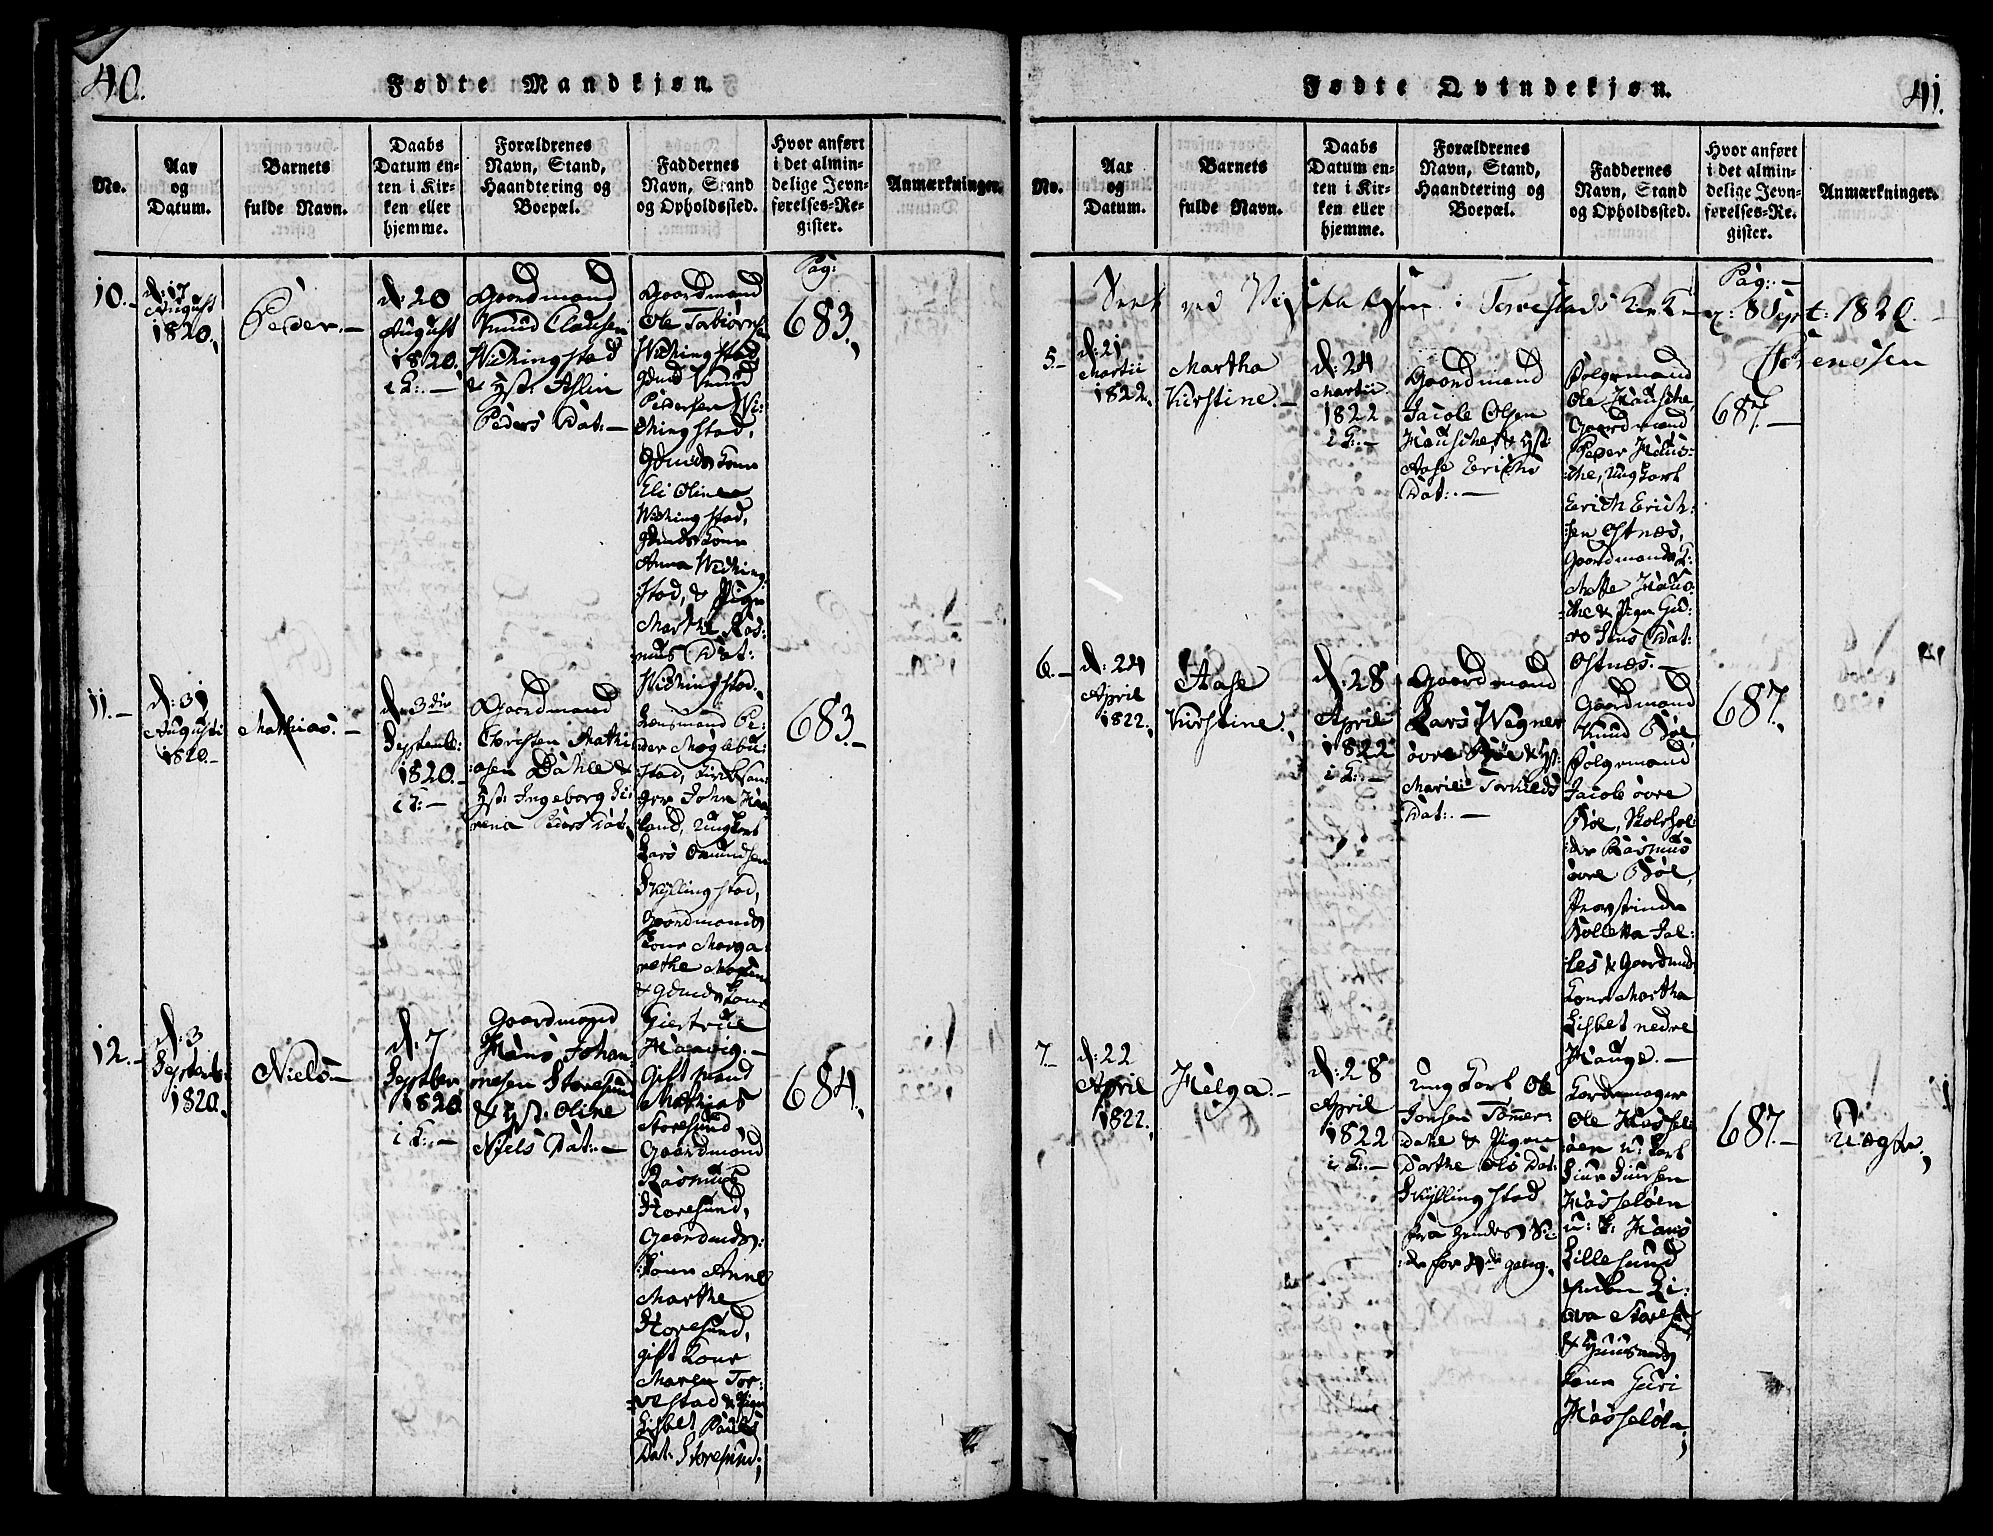 40.
Fødte Mandkjøn.
No.
Aar
og
Datum.
Barnets
fulde Navn.
Daabs
Datum en-
ten i Kir-
ken eller
hjemme.
Forældrenes
Navn, Stand,
Haandtering og
Boepæl.
Faddernes
Navn, Stand
og Opholdssted.
Hvor anført
i det almin-
delige Jevn-
førelses-Re-
gister.
Anmærkninger.
10.-
d: 17
August
1820.
Peder.-
d: 20
August
1820.
i K:-
Gaardmand
Knud Clausen
Wichingstad
& Hst: Ahlin
Peders Dat:-
Gaardmand
Ole Torbiørns
Wichingstad
Gmd Knud
Pedersen Wi-
chingstad,
Gmds Kone
Eli Oline
Wichingstad,
Gmds Kone
Anna Wiching-
stad, & Pign
Marthe Ras-
mus Dat:
Wichingstad.
Pag:
683.
11.-
d: 31
Augusti
1820.-
Mathias.-
d: 3die
Septemb:
1820.-
i K:-
Gaardmand
Christen Mathi-
asen Dahle &
Hst: Ingeborg Se-
rena Peders Dat:
Lensmand Pe-
der Møglebu-
stad, Kirkesan-
ger John Haa-
land, Ungkarl
Lars Omundsen
Skyllingstad,
Gaardmands
Kone Marga-
rethe
& Gmds Kone
Giertrue
Haavig.-
683.-
12.-
d: 3
Septemb:
1820.
Niels-
d. 7
September
1820.
i K:-
Gaardmand
Hans Johan-
nesen Storesund
& Hst. Oline
Niels Dat:-
Gift Mand
Mathias
Storesund,
Gaardmand
Rasmus
Storesund,
Gaardmds:
Kone Anne
Marthe
Storesund,
gift Kone
Maren Tor-
vestad & Pign
Lisbet Pauls
Dat: Storesund.
684.
41.
Fødte Qvindekjøn.
No.
Aar
og
Datum.
Barnets
fulde Navn.
Daabs
Datum en-
ten i Kir-
ken eller
hjemme.
Forældrenes
Navn, Stand,
Haandtering og
Boepæl.
Faddernes
Navn, Stand
og Opholdssted.
Hvor anført
i det almin-
delige Jevn-
førelses-Re-
gister.
Anmærkninger.
Pag:-
Seet ved Visitatsen i Torvestads Kirke d: 8 Sept: 1822.
Sørenssen
5.-
d: 21
Martii
1822.
Martha
Kirstine.-
d: 24
Martii
1822
i K:-
Gaardmand
Jacob Olsen
Hausche & Hst:
Aase Erichs
Dat:-
Bolgrmand
Ole Hausche,
Gaardmand
Peder Haus-
che, Ungkarl
Erich Erich-
sen Ostnæs,
Gaardmands K:
Mette Haus-
che & Pign Gu-
ro Jens Dat:
Ostnæs.-
687.-
6.-
d: 24
April
1822.
Aase
Kirstine.
d: 28
April
1822
i K:-
Gaardmand
Lars Wegner
øvre Bøe & Hst:
Marie Torkilds
Dat:-
Gaardmand
Knud Bøe,
Bolgrmand
Jacob øvre
Bøe, Skolehol-
der Rasmus
øvre Bøe,
Provstinde
Bolletta Sal-
les & Gaardmds
Kone Martha
Lisbet nedre
Hauge.-
687.
7.-
d: 22
April
1822.
Helga.-
d: 28
April
1822
i K:-
Ung Karl Ole
Jonsen Tømer-
dahl & Pigen
Dorthe Ols Dat:
Skyllingstad
fra hendes Si-
de for 4de gang.
Ole Hasselø-
øen u: Karl
Siur Siursen
Hasseløen
u: K: Hans
Lillesund
Li-
va Storesund
& Huusmds
Kone Guri
Hasseløen
687.-
Uægte.